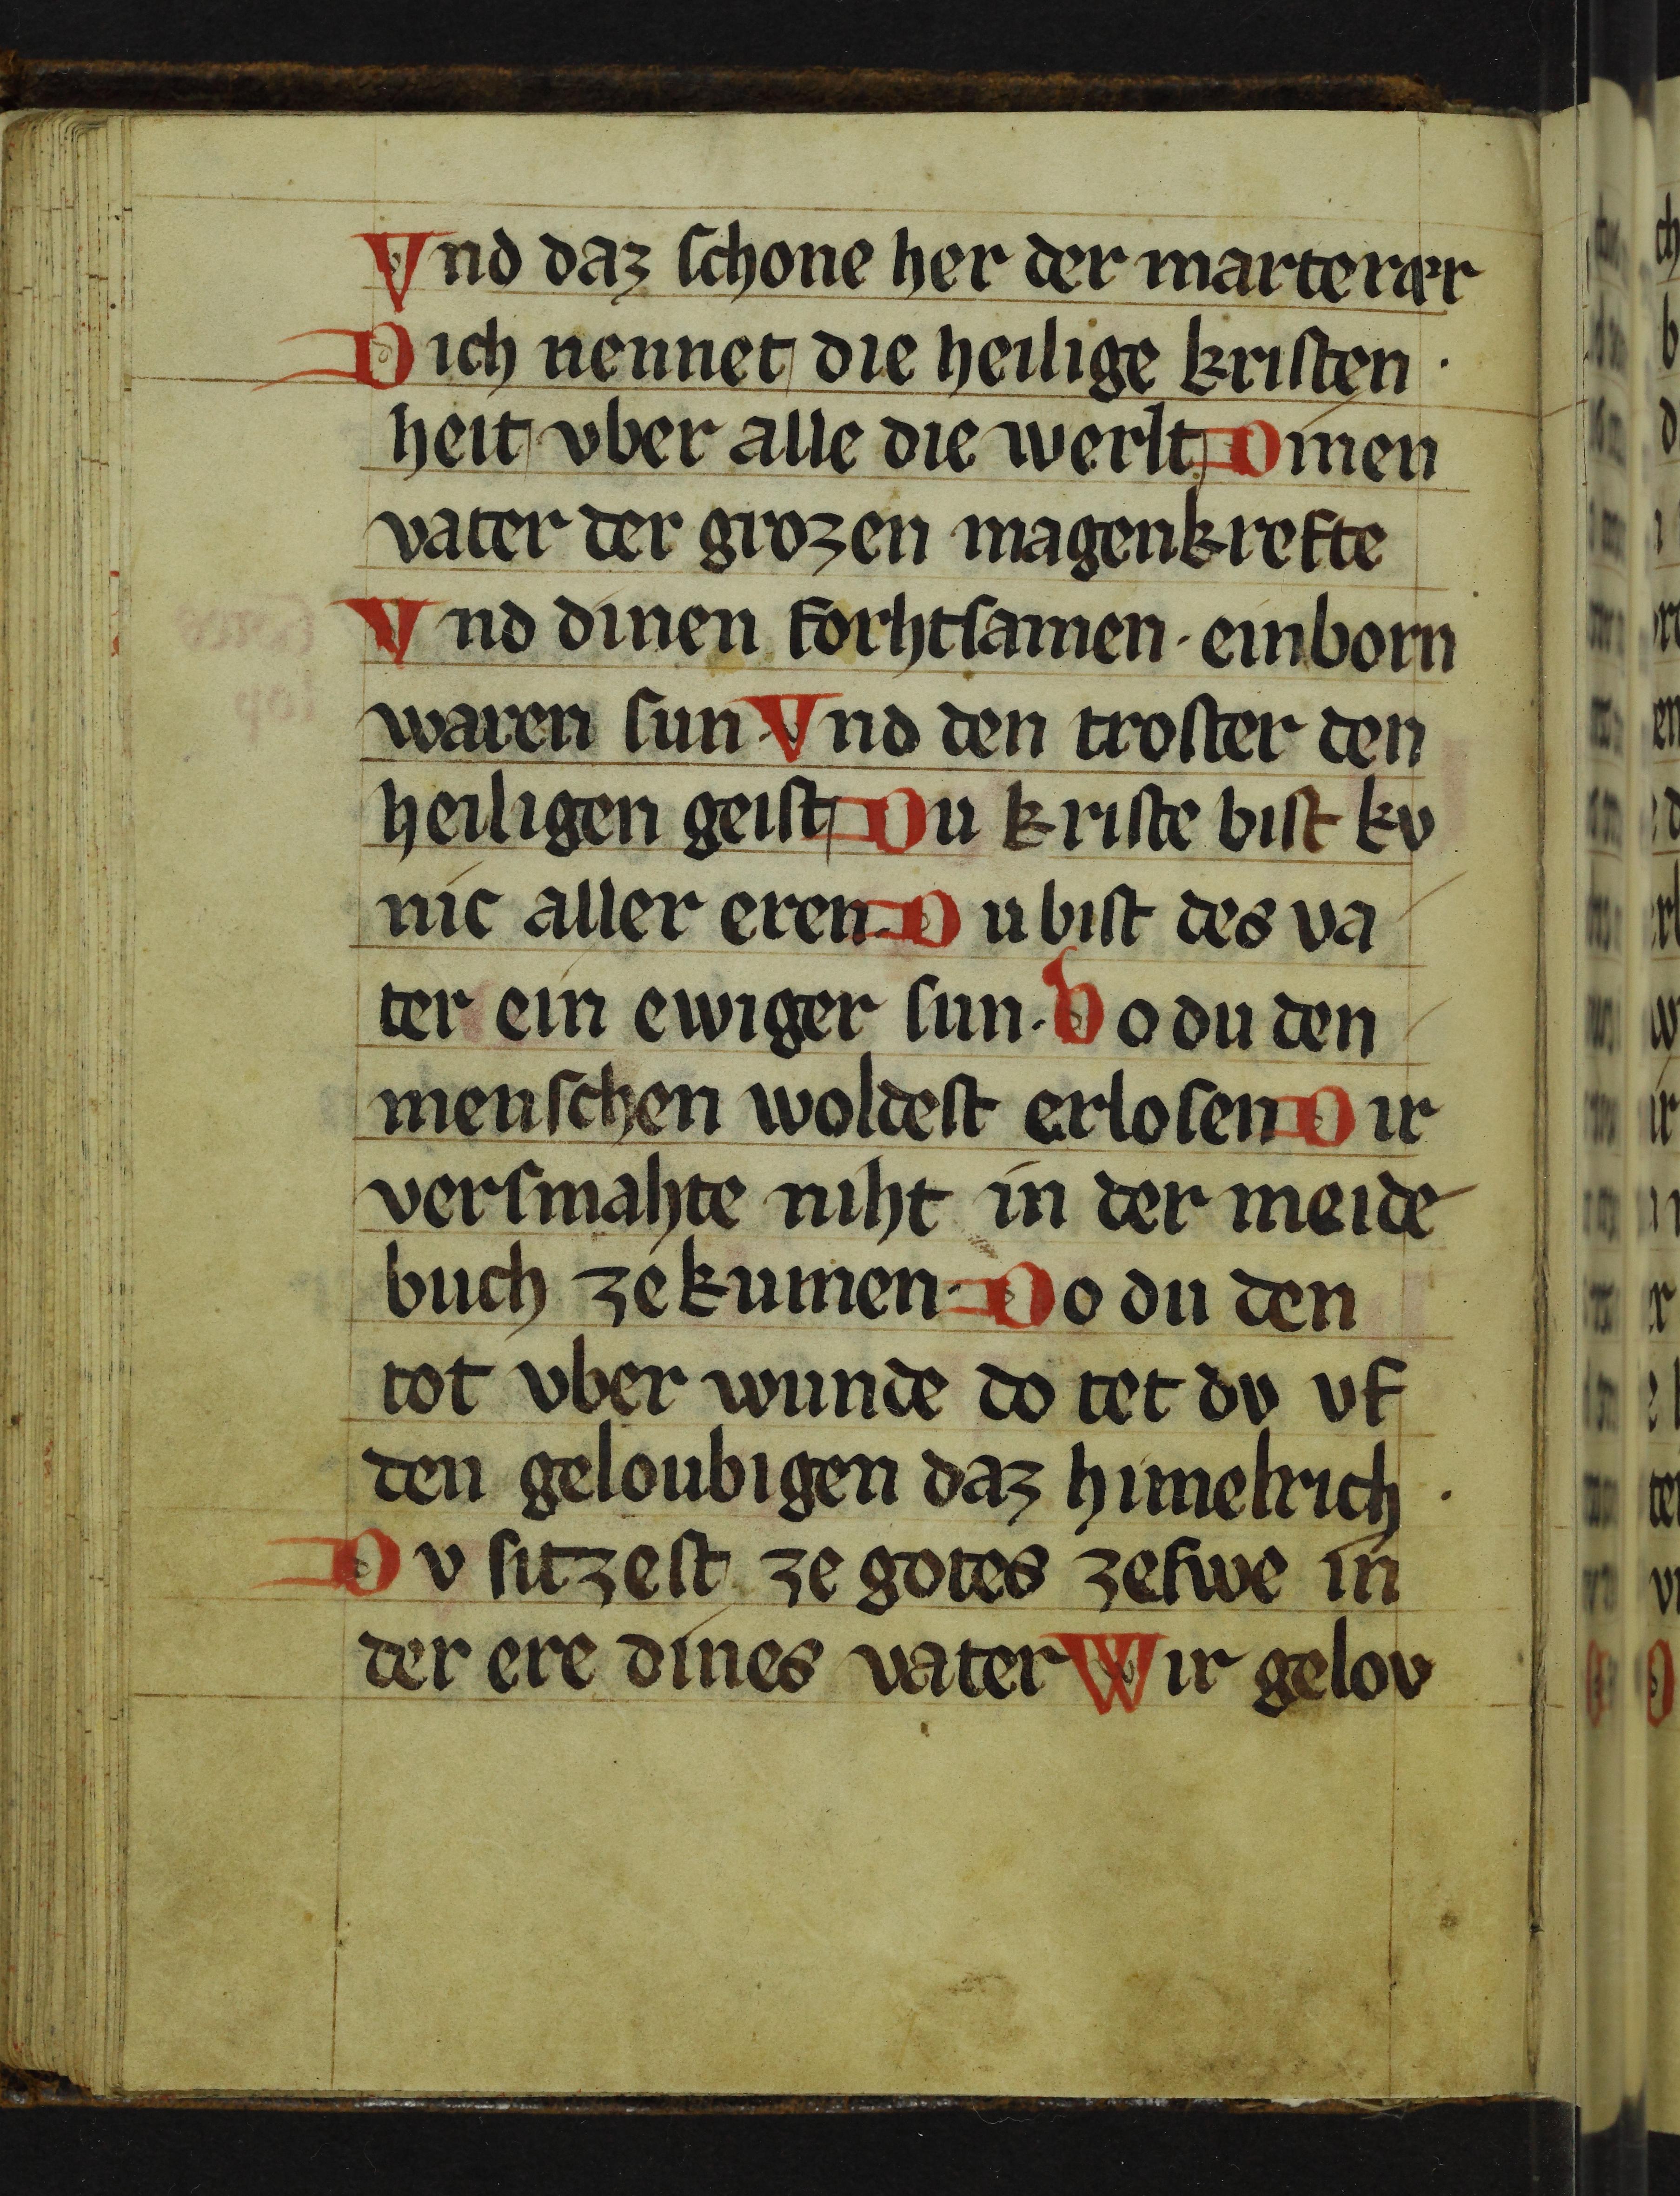 Vnd daz ſchone her der marterær
Dich nennet die heilige kriſten ·
heit vber alle die werlt Dínen
vater der grozen magenkrefte
Vnd dínen forhtſamen · eínborn
waren ſun · Vnd den troſter den
heiligen geiſt Du kriſte biſt kv
níc aller eren · Du biſt des va
ter eín ewiger ſun · Do du den
menſchen woldeſt erloſen Dir
verſmahte niht ín der meide
buch ze kumen · Do du den
tot vber wunde do tet dv vf
den geloubigen daz himelrich ·
Dv ſitzeſt ze gotes zeſwe ín
der ere dínes vater Wir gelov